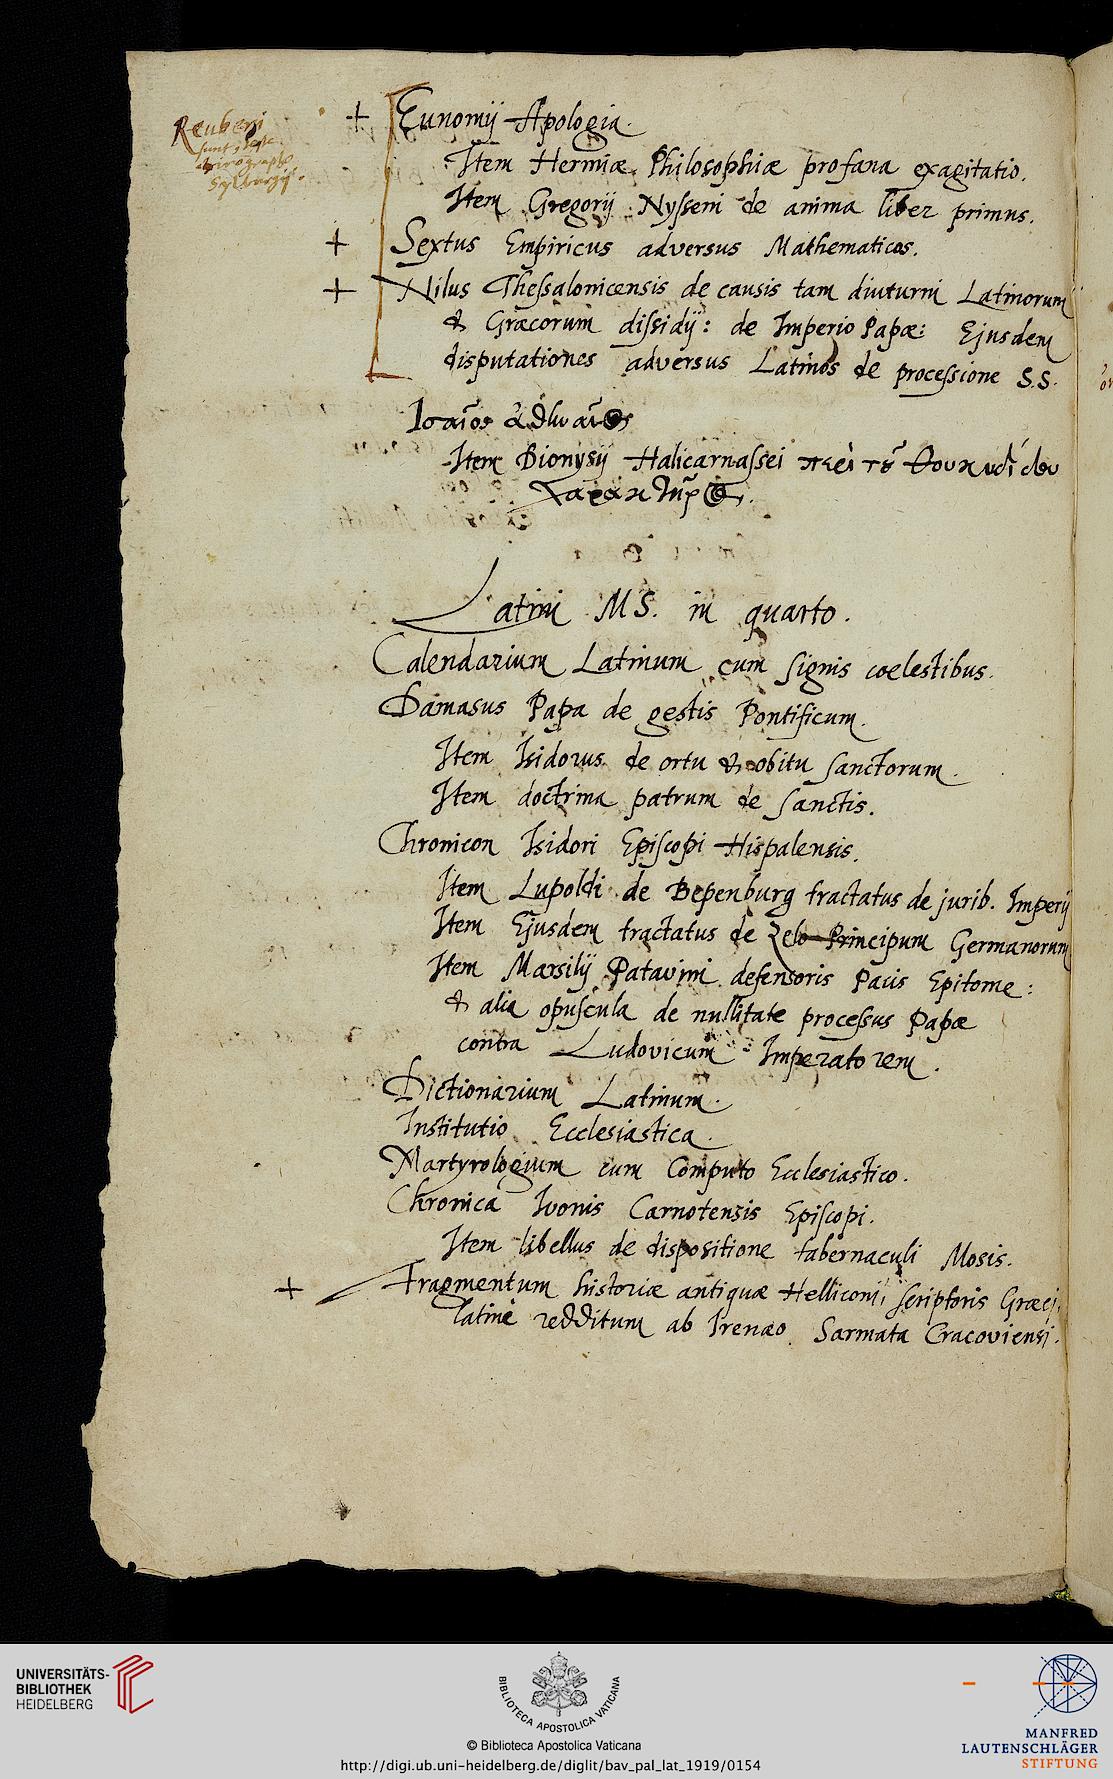 Reuberi
sunt, teste
chirographo
Sylburgij.
+ Eunomij Apologia.
Item Hermiæ Philosophiæ profana exagitatio.
Item Gregorij Nysseni de anima liber primus.
+ Sextus Empiricus adversus Mathematicos.
+ Nilus Thessalonicensis de causis tam diuturni Latinorum
& Græcorum dissidij: de Imperio Papæ: Ejusdem
disputationes adversus Latinos de processione S.S.
Item Dionysij Halicarnassei περὶ τοῦ Θουκυδίδου
χαρακτῆρος.
Latini MS. in quarto.
Calendarium Latinum cum signis coelestibus.
Damasus Papa de gestis Pontificum.
Item Isidorus de ortu & obitu sanctorum.
Item doctrina patrum de sanctis.
Chronicon Isidori Episcopi Hispalensis.
Item Lupoldi de Bepenburg tractatus de jurib. Imperij
Item Ejusdem tractatus de Zelo Principum Germanorum
Item Marsilij Patavini defensoris Pacis Epitome:
& alia opuscula de nullitate processus Papæ
contra Ludovicum Imperatorem.
Dictionarium Latinum.
Institutio Ecclesiastica.
Martyrologium cum Computo Ecclesiastico.
Chronica Ivonis Carnotensis Episcopi.
Item libellus de dispositione tabernaculi Mosis.
+ Fragmentum historiæ antiquæ Helliconij scriptoris Græci,
latine redditum ab Irenæo Sarmata Cracoviensi.
UNIVERSITÄTS-
BIBLIOTHEK
HEIDELBERG
BIBLIOTECA APOSTOLICA VATICANA
© Biblioteca Apostolica Vaticana
http://digi.ub.uni-heidelberg.de/diglit/bav_pal_lat_1919/0154
MANFRED
LAUTENSCHLÄGER
STIFTUNG